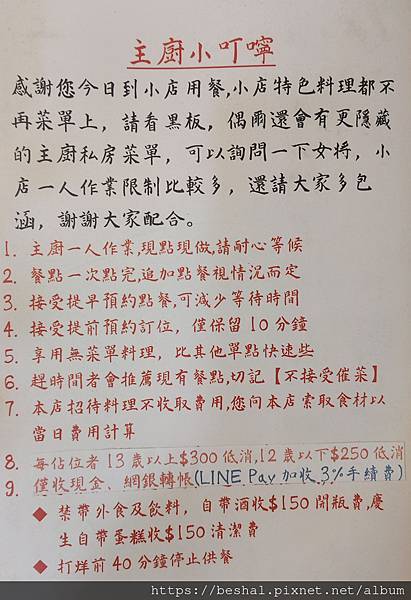 主廚小叮嚀
感謝您今日到小店用餐,小店特色料理都不
再菜單上，請看黑板，偶爾還會有更隱藏
的主廚私房菜單，可以詢問一下女將，小
店一人作業限制比較多，還請大家多包
涵，謝謝大家配合。
1. 主廚一人作業,現點現做,請耐心等候
2. 餐點一次點完,追加點餐視情況而定
3. 接受提早預約點餐,可減少等待時間
4. 接受提前預約訂位，僅保留10分鐘
5. 享用無菜單料理，比其他單點快速些
6. 趕時間者會推薦現有餐點,切記【不接受催菜】
7. 本店招待料理不收取費用,您向本店索取食材以
當日費用計算
8. 每佔位者13歲以上$300低消,12歲以下$250低消
9. 僅收現金、網銀轉帳(LINE Pay加收3%手續費)
◆ 禁帶外食及飲料，自帶酒收$150開瓶費,慶
生自帶蛋糕收$150清潔費
◆ 打烊前40分鐘停止供餐
https://beshal.pixnet.net/album